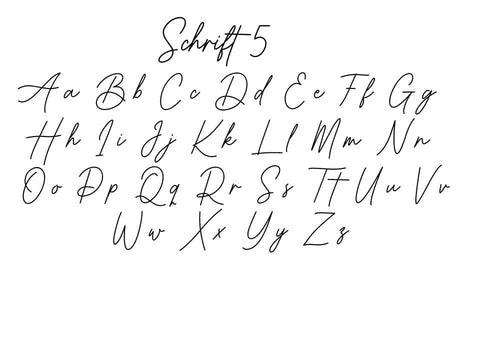 Schrift 5
Aa Bb Cc Dd Ee Ff Gg
Hh Ii Jj Kk Ll Mm Nn
Oo Pp Qq Rr Ss Tt Uu Vv
Ww Xx Yy Zz